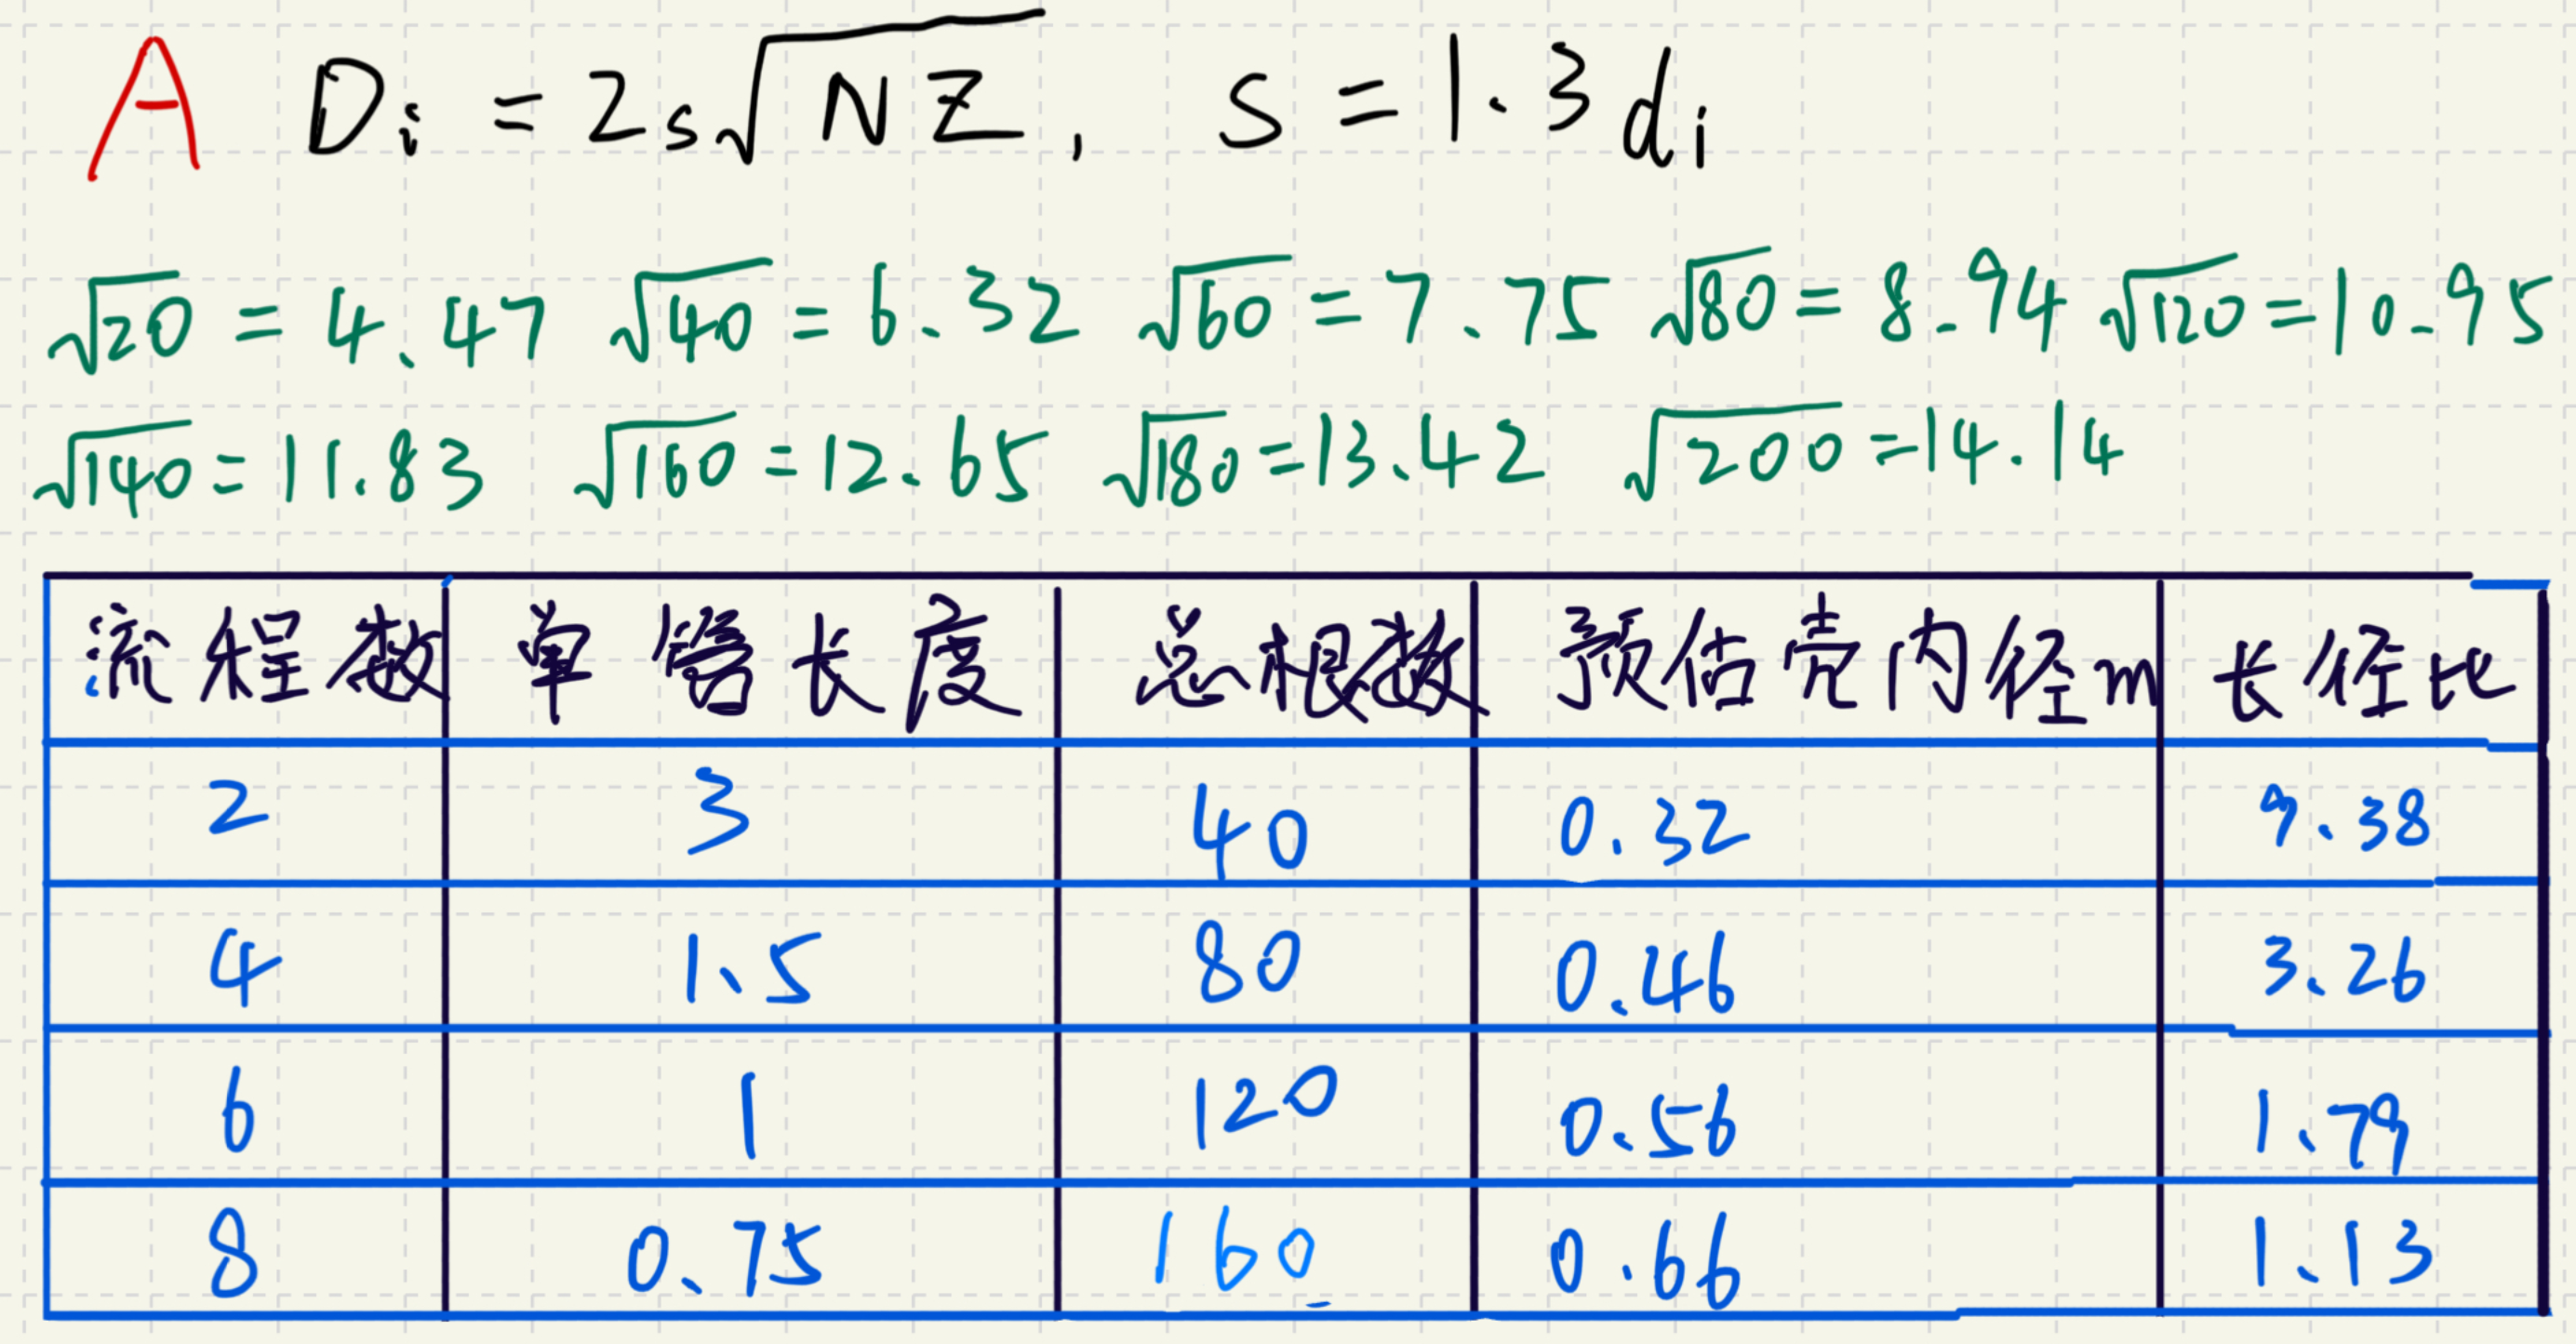 A Di = 2s√NZ, S = 1.3di
√20 = 4.47 √40 = 6.32 √60 = 7.75 √80 = 8.94 √120 = 10.95
√140 = 11.83 √160 = 12.65 √180 = 13.42 √200 = 14.14
流程数 单管长度 总根数 预估壳内径m 长径比
2 3 40 0.32 9.38
4 1.5 80 0.46 3.26
6 1 120 0.56 1.79
8 0.75 160 0.66 1.13